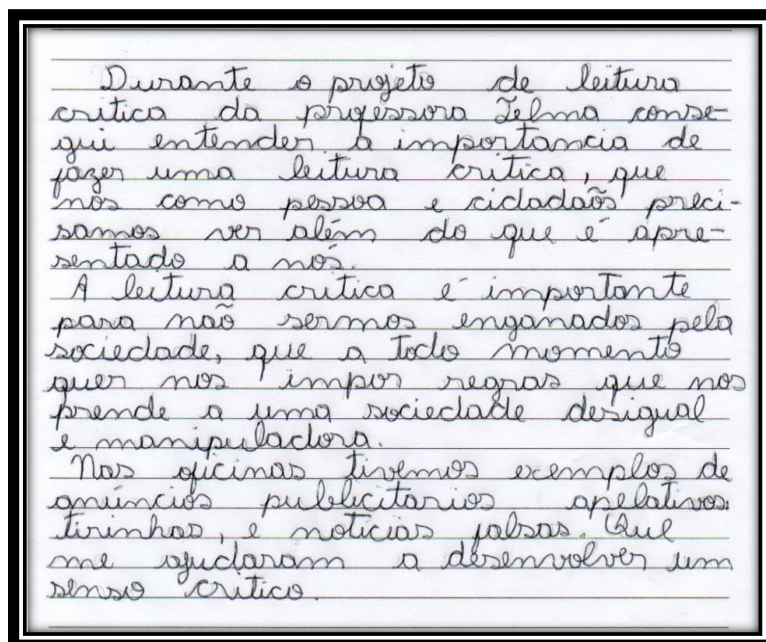 Durante o projeto de leitura
critica da professora Telma conse-
gui entender a importancia de
fazer uma leitura critica, que
nos como pessoa e cidadaõs preci-
samos ver além do que é apre-
sentado a nós.
A leitura critica é importante
para naõ sermos enganados pela
sociedade, que a todo momento
quer nos impor regras que nos
prende a uma sociedade desigual
e manipuladora.
Nas oficinas tivemos exemplos de
anúncios publicitarios apelativos.
tirinhas, e noticias falsas. Que
me ajudaram a desenvolver um
senso critico.